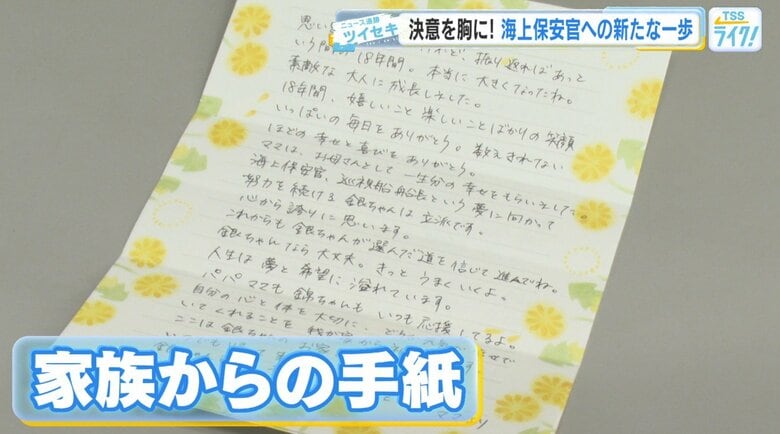 ニュース追跡
ツイセキ
決意を胸に! 海上保安官への新たな一歩
TSS
ライク!
思い
いう間の18年間。本当に大きくなったね。
素敵な大人に成長しました。
18年間、嬉しいこと楽しいことばかりの笑顔
いっぱいの毎日をありがとう。数えきれない
ほどの幸せと喜びをありがとう。
ママは、お母さんとして一生分の幸せをもらいました。
海上保安官、巡視船船長という夢に向かって
努力を続ける銀ちゃんは立派です。
心から誇りに思います。
これからも銀ちゃんが選んだ道を信じて進んでね。
銀ちゃんなら大丈夫。きっとうまくいくよ。
人生は夢と希望に溢れています。
パパママも錦ちゃんもいつも応援してるよ。
自分の心と体を大切に
いてくれることを
ここは銀ちゃんの
家族からの手紙